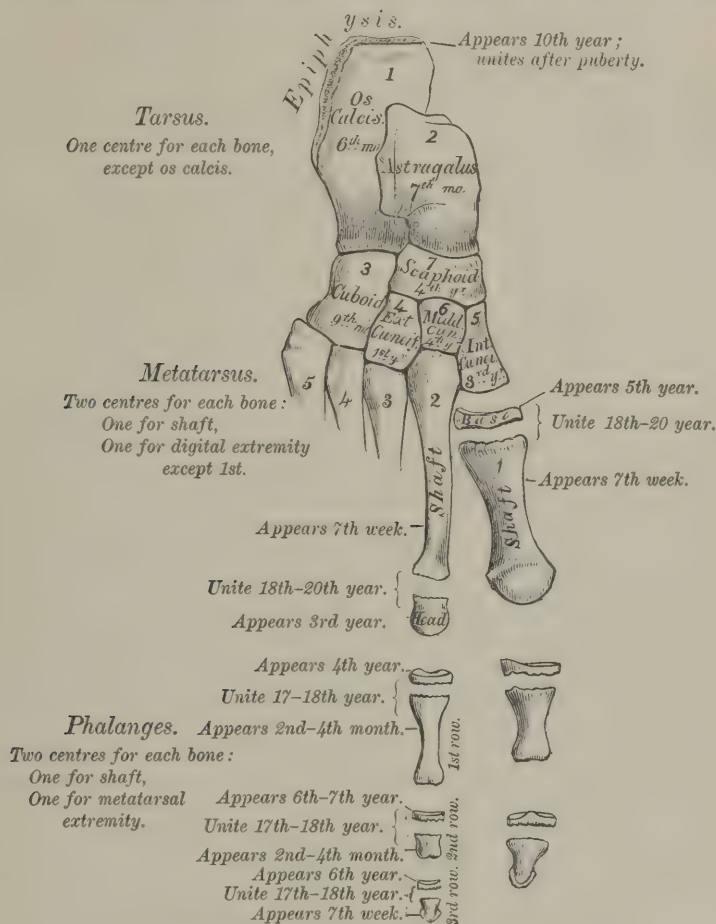 Epiphysis.
Appears 10th year;
unites after puberty.
1
Os
Calcis.
6th mo.
2
Astragalus
7th mo.
Tarsus.
One centre for each bone,
except os calcis.
3
Cuboid
9th mo.
7
Scaphoid
4th yr
4
Ext
Cuneif.
1st yr
6
Midd
Cun
4th y
5
Int
Cunei
3rd yr
Metatarsus.
Two centres for each bone:
One for shaft,
One for digital extremity
except 1st.
5
4
3
2
Shaft
Appears 5th year.
Base
Unite 18th–20 year.
1
Shaft
Appears 7th week.
Appears 7th week.
Unite 18th–20th year.
Appears 3rd year.
Head
Appears 4th year.
Unite 17–18th year.
Phalanges.
Appears 2nd–4th month.
1st row.
Two centres for each bone:
One for shaft,
One for metatarsal
extremity.
Appears 6th–7th year.
Unite 17th–18th year.
Appears 2nd–4th month.
2nd row.
Appears 6th year.
Unite 17th–18th year.
Appears 7th week.
3rd row.